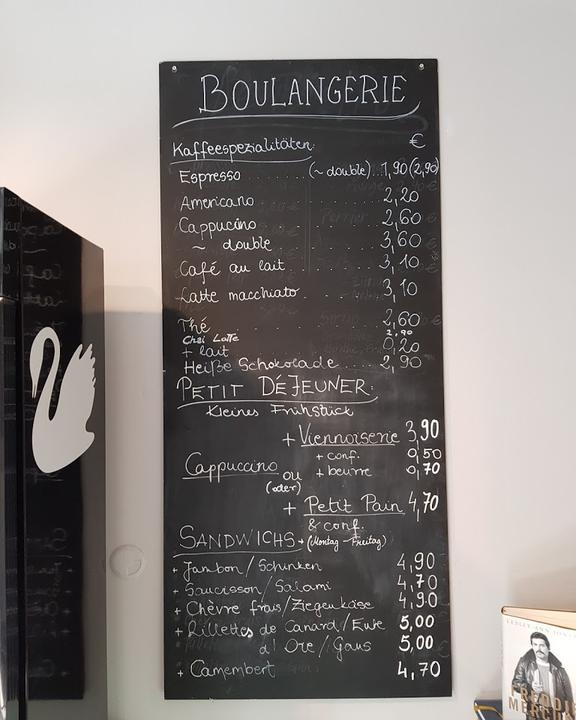 BOULANGERIE
Kaffeespezialitäten: €
Espresso ..... (~ double) .. 1,90 (2,90)
Americano 2,20
Cappucino 2,60
~ double 3,60
Café au lait 3,10
Latte macchiato 3,10
Thé 2,60
Chai Latte 2,90
+ lait 0,20
Heiße Schokolade ..... 2,90
PETIT DÉJEUNER:
Kleines Frühstück
+ Viennoiserie 3,90
+ conf. 0,50
Cappuccino ou + beurre 0,70
(oder)
+ Petit Pain 4,70
& conf.
SANDWICHS + (Montag - Freitag)
+ Jambon / Schinken 4,90
+ Saucisson / Salami 4,70
+ Chèvre frais / Ziegenkäse 4,90
+ Rillettes de Canard / Ente 5,00
d' Oie / Gans 5,00
+ Camembert 4,70
LESLEY-ANN JONES
FREDDIE
MERCURY